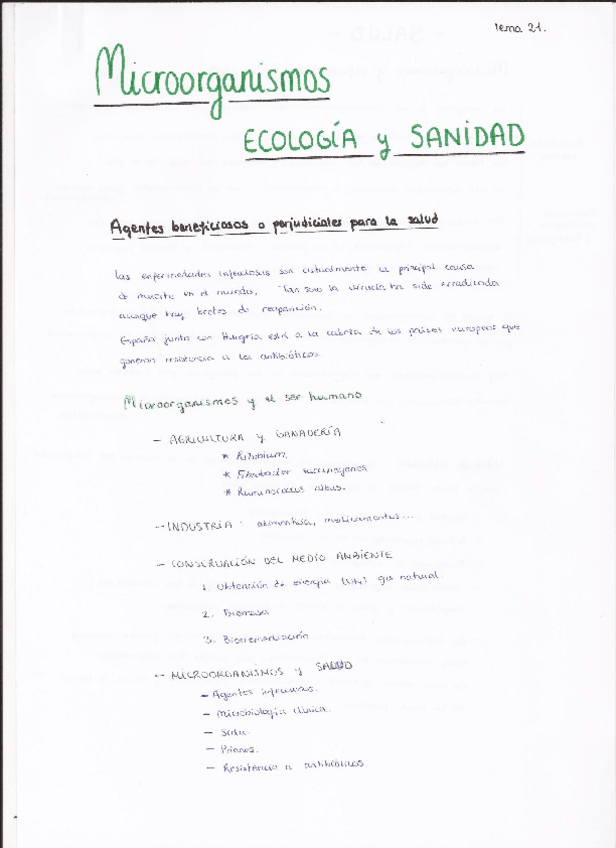 Tema 21.
Microorganismos
ECOLOGÍA y SANIDAD
Agentes beneficiosos o perjudiciales para la salud
Las enfermedades infecciosas son actualmente la principal causa
de muerte en el mundo. Tan solo la viruela ha sido erradicada
aunque hay brotes de reaparición.
España junto con Hungría está a la cabeza de los países europeos que
generan resistencia a los antibióticos.
Microorganismos y el ser humano
- AGRICULTURA y GANADERÍA
* Rizobium.
* Fibrobacter succinogenes
* Ruminococcus albus.
- INDUSTRIA: alimenticia, medicamentos...
- CONSERVACIÓN DEL MEDIO AMBIENTE
1. Obtención de energía (CH4) gas natural.
2. Biomasa
3. Biorremediación
- MICROORGANISMOS y SALUD
- Agentes infecciosos.
- Microbiología clínica.
- Sida.
- Priones.
- Resistencia a antibióticos.